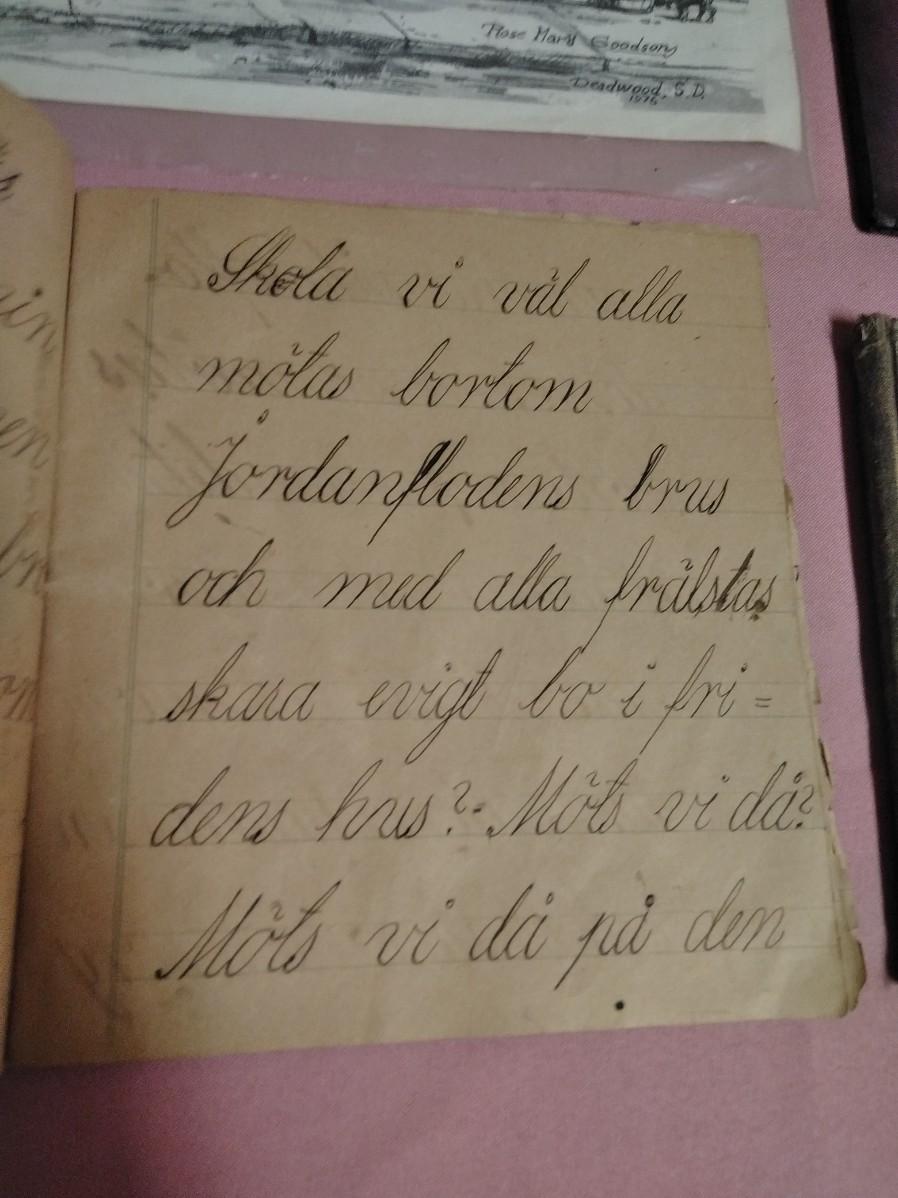 Rose Mary Goodson
Deadwood, S.D.
1976
Skola vi väl alla
mötas bortom
Jordanflodens brus
och med alla frälstas
skara evigt bo i fri=
dens hus?- Möts vi då?
Möts vi då på den
in
en
br